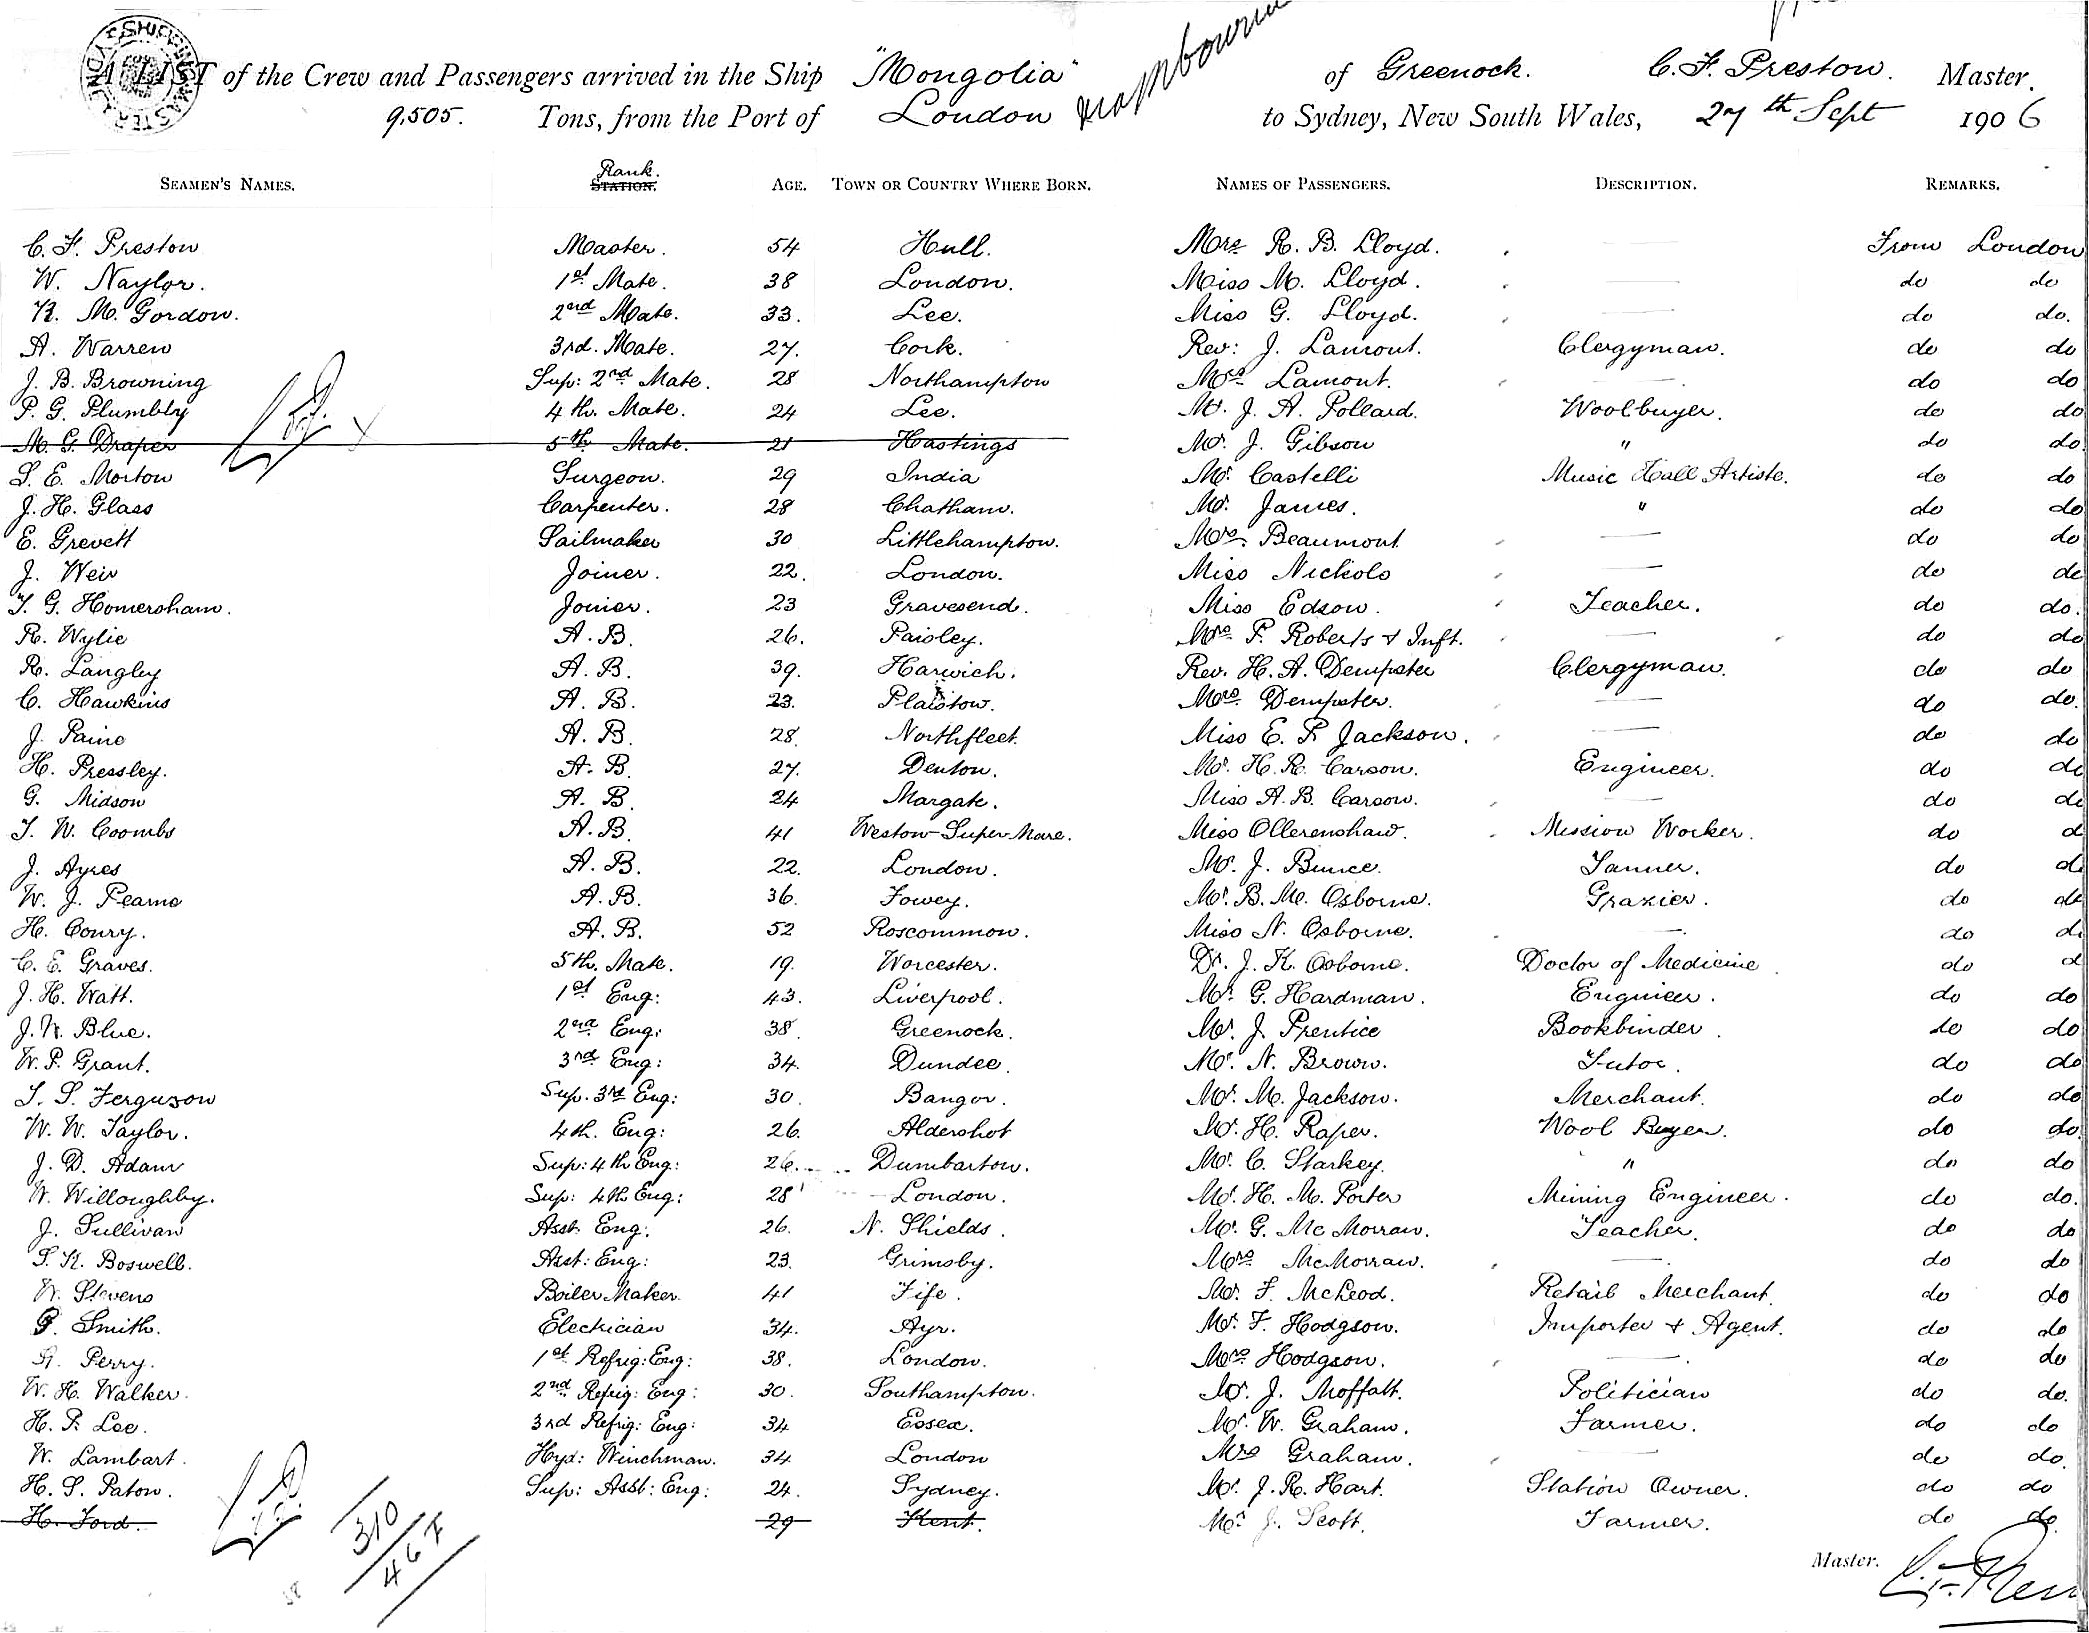 A LIST of the Crew and Passengers arrived in the Ship "Mongolia" of Greenock. C. F. Preston. Master.
9,505. Tons, from the Port of London to Sydney, New South Wales, 27th Sept 1906
Rank.
SEAMEN'S NAMES. STATION. AGE. TOWN OR COUNTRY WHERE BORN. NAMES OF PASSENGERS. DESCRIPTION. REMARKS.
C. F. Preston Master. 54 Hull. Mrs R. B. Lloyd. From London
W. Naylor. 1st Mate. 38 London. Miss M. Lloyd. do do
R. M. Gordon. 2nd Mate. 33. Lee. Miss G. Lloyd. do do.
A. Warren 3rd. Mate. 27. Cork. Rev: J. Lamont. Clergyman. do do
J. B. Browning Sup: 2nd Mate. 28 Northampton Mrs Lamont. do do
P. G. Plumbly 4th. Mate. 24 Lee. Mr. J. A. Pollard. Woolbuyer. do do
M. G. Draper 5th Mate. 21 Hastings Mr. J. Gibson " do do
S. E. Morton Surgeon. 29 India Mr. Castelli Music Hall Artiste. do do
J. H. Glass Carpenter. 28 Chatham. Mr. James. " do do
E. Grevett Sailmaker 30 Littlehampton. Mrs. Beaumont do do
J. Weir Joiner. 22. London. Miss Nickols do do
T. G. Homersham. Joiner. 23 Gravesend. Miss Edson. Teacher. do do.
R. Wylie A. B. 26. Paisley. Mrs P. Roberts + Inft. do do
R. Langley A. B. 39. Harwich. Rev. H. A. Dempster Clergyman. do do
C. Hawkins A. B. 23. Plaistow. Mrs. Dempster. do do.
J. Paine A. B. 28. Northfleet. Miss E. P. Jackson. do do
H. Pressley. A. B. 27. Denton. Mr. H. R. Carson. Engineer. do do
G. Midson A. B. 24 Margate. Miss A. B. Carson. do do
T. W. Coombs A. B. 41 Weston-Super-Mare. Miss Ollerenshaw. Mission Worker. do d
J. Ayres A. B. 22. London. Mr. J. Bunce. Tanner. do do
W. J. Pearne A. B. 36. Fowey. Mr. B. M. Osborne. Grazier. do do
H. Coury. A. B. 52 Roscommon. Miss N. Osborne. do do
C. E. Graves. 5th. Mate. 19. Worcester. Dr. J. K. Osborne. Doctor of Medicine do d
J. H. Watt. 1st Eng: 43. Liverpool. Mr. G. Hardman. Engineer. do do
J. W. Blue. 2nd Eng: 38 Greenock. Mr. J. Prentice Bookbinder. do do
W. P. Grant. 3rd Eng: 34. Dundee. Mr. N. Brown. Tutor. do do
T. S. Ferguson Sup. 3rd Eng: 30. Bangor. Mr. M. Jackson. Merchant. do do
W. W. Taylor. 4th. Eng: 26. Aldershot Mr. H. Raper. Wool Buyer. do do.
J. D. Adam Sup: 4th Eng: 26. Dumbarton. Mr. C. Starkey. " do do
W. Willoughby. Sup: 4th Eng: 28 London. Mr. H. M. Porter Mining Engineer. do do.
J. Sullivan Asst. Eng. 26. N. Shields. Mr. G. McMorran. Teacher. do do
S. K. Boswell. Asst: Eng: 23. Grimsby. Mrs McMorran. do do
W. Stevens Boiler Maker. 41 Fife. Mr. F. McLeod. Retail Merchant. do do
P. Smith. Electrician 34. Ayr. Mr. F. Hodgson. Importer + Agent. do do
R. Perry. 1st Refrig: Eng: 38. London. Mrs Hodgson. do do
W. H. Walker. 2nd Refrig: Eng: 30. Southampton. Mr. J. Moffatt. Politician do do.
H. P. Lee. 3rd Refrig: Eng: 34 Essex. Mr. W. Graham. Farmer. do do
W. Lambart. Hyd: Winchman. 34. London Mrs Graham. do do.
H. S. Paton. Sup: Asst: Eng: 24. Sydney. Mr. J. R. Hart. Station Owner. do do
H. Ford. 29 Kent. Mr. J. Scott. Farmer. do do.
310
467
Master.